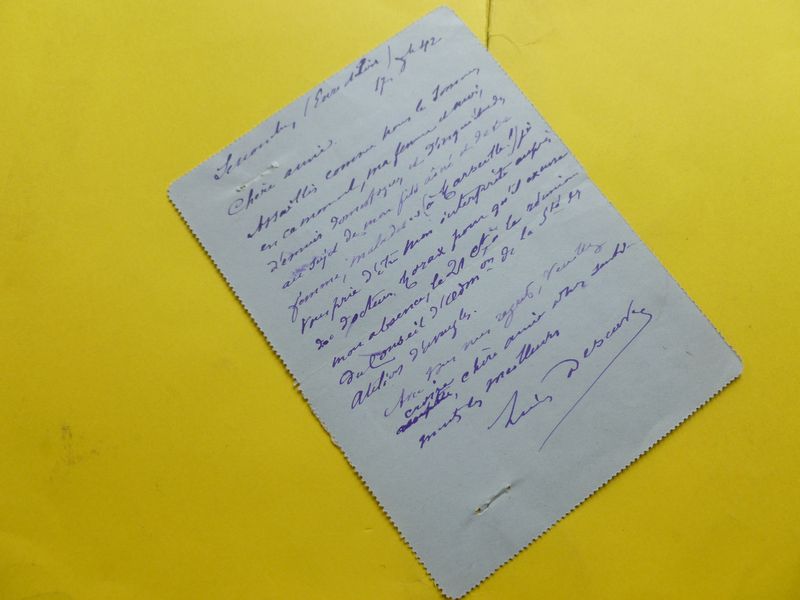 Senonches, (Eure et Loir)
17, 9bre 42
Chère amie.
Assaillis comme nous le sommes
en ce moment, ma femme et moi,
d'ennuis domestiques et d'inquiétudes
au sujet de mon fils aîné et de sa
femme, malades (à Marseille!) je
vous prie d'être mon interprète auprès
du docteur pour qu'il excuse
mon absence, le 21 à la réunion
du Conseil d'adm on de la Sté des
Ateliers d'aveugles.
Avec tous mes regrets, veuillez
croire, chère amie à nos
sentiments les meilleurs
Lucien Descaves